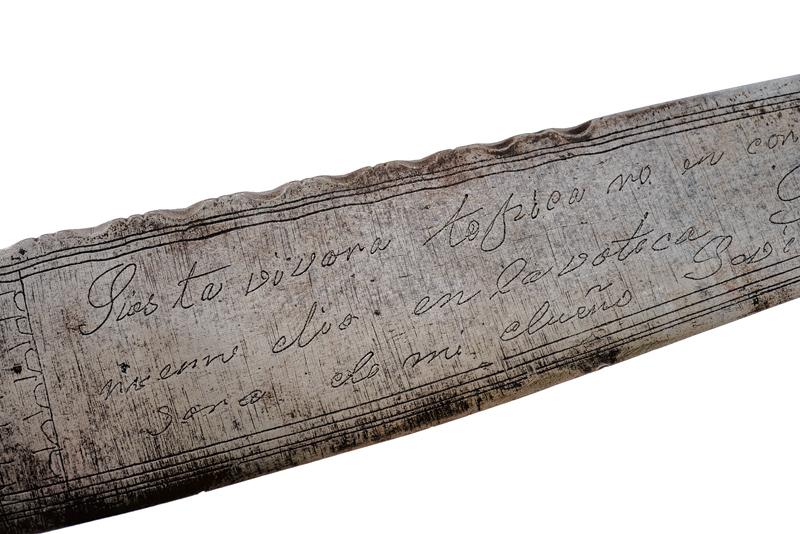 Sies ta vivora tepica no en con
dio en la votica
sora de mi dueño